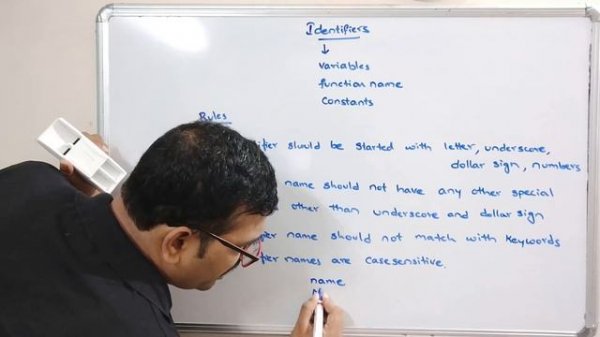 Identifiers
↓
variables
function name
constants
Rules
should be started with letter, underscore,
dollar sign, numbers
name should not have any other special
other than underscore and dollar sign
name should not match with keywords
names are casesensitive.
name